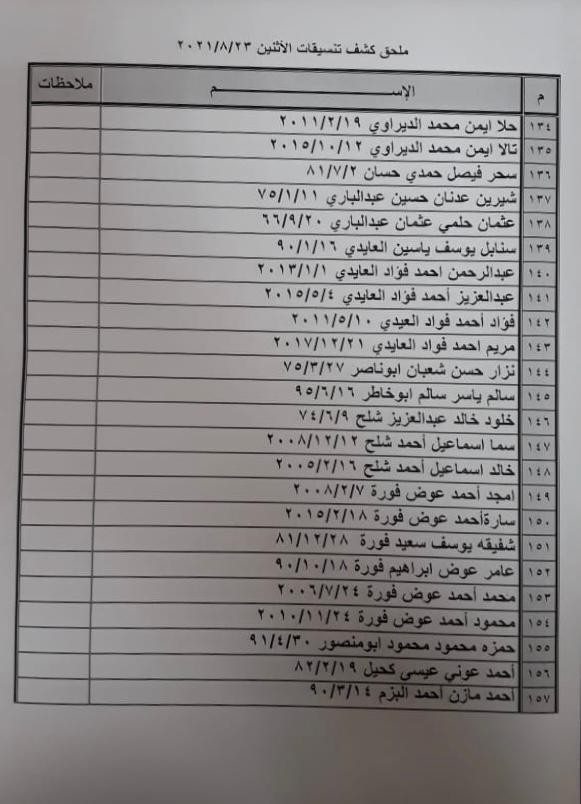 ملحق كشف تنسيقات الأثنين ٢٠٢١/٨/٢٣
م الإســـــــــم ملاحظات
١٣٤ حلا ايمن محمد الديراوي ٢٠١١/٢/١٩
١٣٥ تالا ايمن محمد الديراوي ٢٠١٥/١٠/١٢
١٣٦ سحر فيصل حمدي حسان ٨١/٧/٢
١٣٧ شيرين عدنان حسين عبدالباري ٧٥/١/١١
١٣٨ عثمان حلمي عثمان عبدالباري ٦٦/٩/٢٠
١٣٩ سنابل يوسف ياسين العايدي ٩٠/١/١٦
١٤٠ عبدالرحمن احمد فؤاد العايدي ٢٠١٣/١/١
١٤١ عبدالعزيز أحمد فؤاد العايدي ٢٠١٥/٥/٤
١٤٢ فؤاد أحمد فواد العيدي ٢٠١١/٥/١٠
١٤٣ مريم احمد فواد العايدي ٢٠١٧/١٢/٢١
١٤٤ نزار حسن شعبان ابوناصر ٧٥/٣/٢٧
١٤٥ سالم ياسر سالم ابوخاطر ٩٥/٦/١٦
١٤٦ خلود خالد عبدالعزيز شلح ٧٤/٦/٩
١٤٧ سما اسماعيل أحمد شلح ٢٠٠٨/١٢/١٢
١٤٨ خالد اسماعيل أحمد شلح ٢٠٠٥/٢/١٦
١٤٩ امجد أحمد عوض فورة ٢٠٠٨/٢/٧
١٥٠ سارةأحمد عوض فورة ٢٠١٥/٢/١٨
١٥١ شفيقه يوسف سعيد فورة ٨١/١٢/٢٨
١٥٢ عامر عوض ابراهيم فورة ٩٠/١٠/١٨
١٥٣ محمد أحمد عوض فورة ٢٠٠٦/٧/٢٤
١٥٤ محمود أحمد عوض فورة ٢٠١٠/١١/٢٤
١٥٥ حمزه محمود محمود ابومنصور ٩١/٤/٣٠
١٥٦ أحمد عوني عيسى كحيل ٨٢/٢/١٩
١٥٧ أحمد مازن أحمد البزم ٩٠/٣/١٤